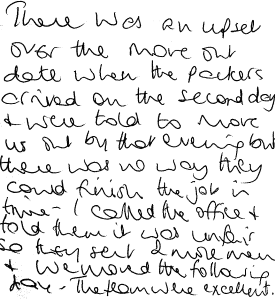 There was an upset
over the move out
date when the packers
arrived on the second day
& were told to move
us out by that evening but
there was no way they
could finish the job in
time - I called the office &
told them it was unfair
so they sent 2 more men
& we moved the following
day - The team were excellent.